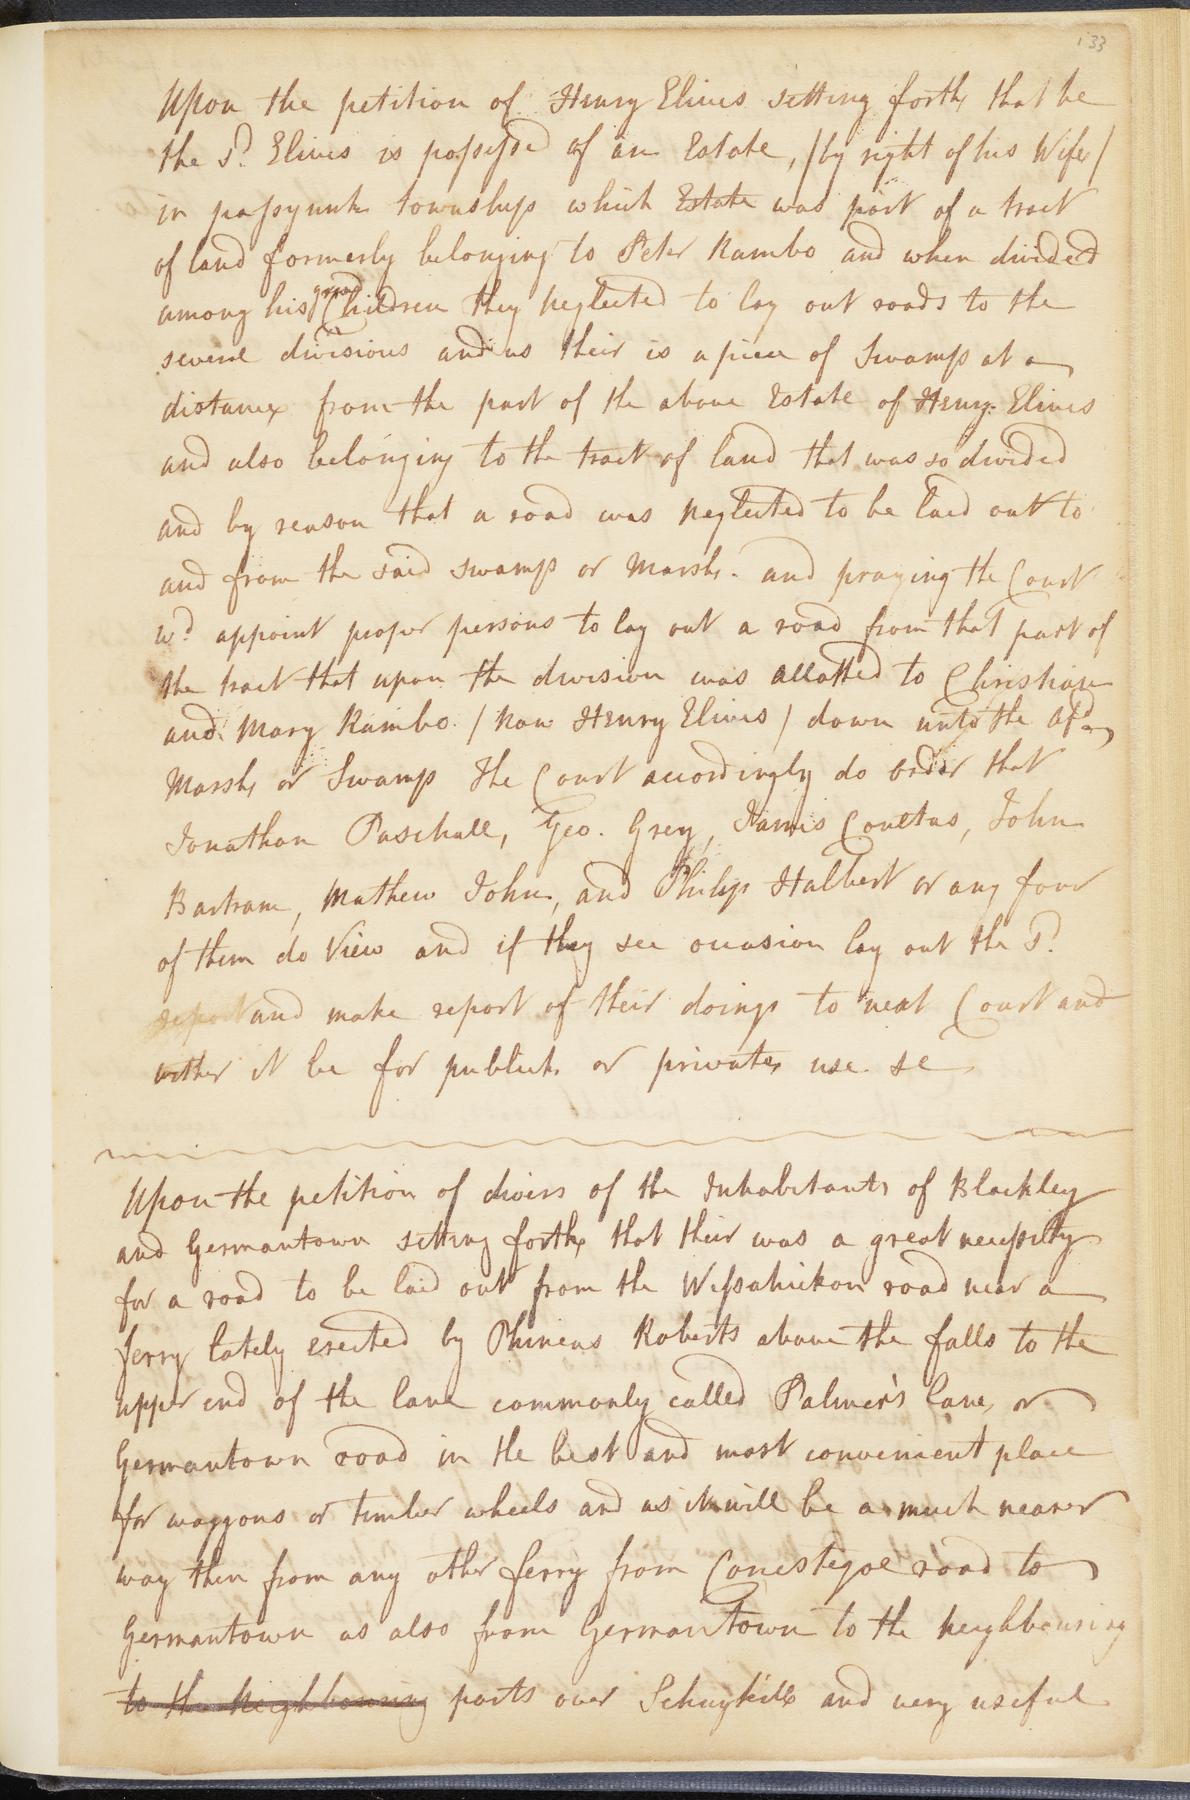 133
Upon the petition of Henry Elives setting forth that he
the Sd. Elives is possessed of an Estate, / by right of his Wife /
in passyunk township which Estate was part of a tract
of land formerly belonging to Peter Rambo and when divided
among his grand Children they neglected to lay out roads to the
several divisions and as their is a piece of Swamp at a
distance from the part of the above Estate of Henry Elives
and also belonging to the tract of land that was so divided
and by reason that a road was neglected to be laid out to
and from the said swamp or Marsh. and praying the Court
wd. appoint proper persons to lay out a road from that part of
the tract that upon the division was allotted to Christian
and Mary Rambo / now Henry Elives / down unto the afd.
Marsh or Swamp The Court accordingly do order that
Jonathan Paschall, Geo. Grey, James Coultas, John
Bartram, Mathew John, and Philip Halbert or any four
of them do View and if they see occasion lay out the Sd.
report and make report of their doings to next Court and
wether it be for publick or private use. &c
Upon the petition of divers of the Inhabitants of Blackley
and Germantown setting forth that their was a great necessity
for a road to be laid out from the Wessahickon road near a
ferry lately erected by Phineas Roberts above the falls to the
upper end of the lane commonly called Palmer's lane or
Germantown road in the best and most convenient place
for waggons or timber wheels and as it will be a much nearer
way then from any other ferry from Conestegoe road to
Germantown as also from Germantown to the neighbouring
to the Neighbouring parts over Schuylkill and very useful